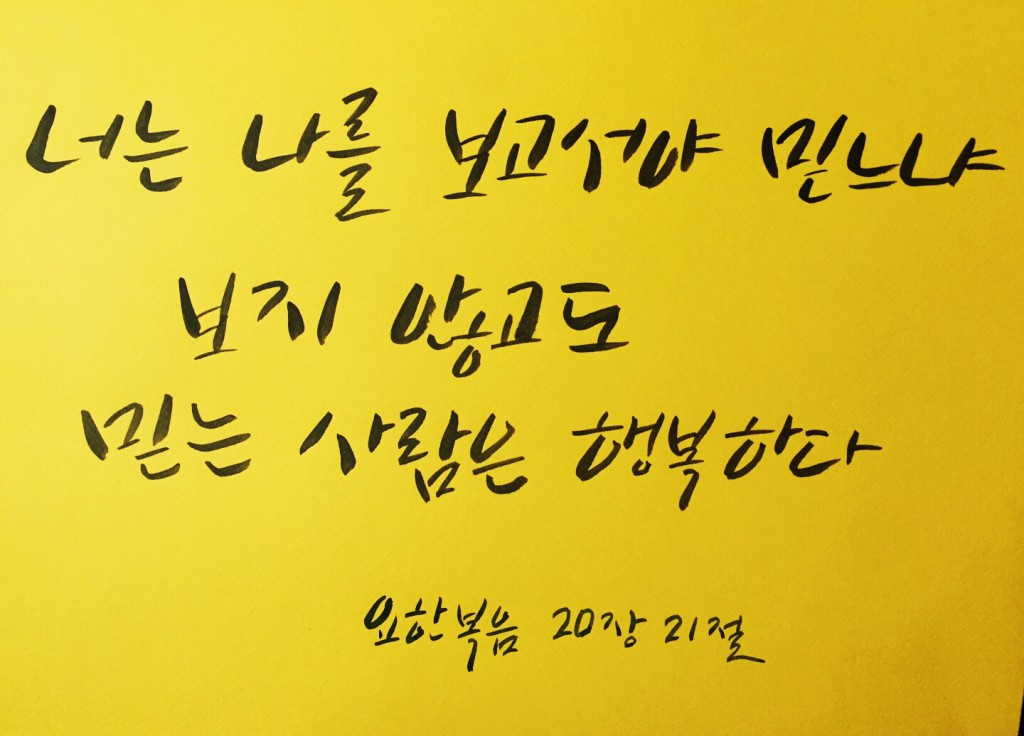 너는 나를 보고서야 믿느냐
보지 않고도
믿는 사람은 행복하다
요한복음 20장 21절